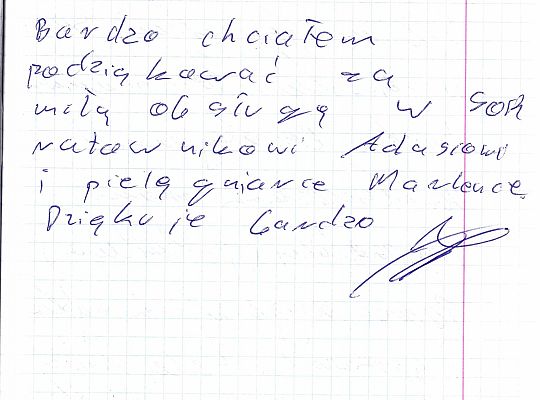 Bardzo chciałem
podziękować za
miłą obsługę w SOR
ratownikowi Adasiowi
i pielęgniarce Marlence.
Dziękuję bardzo